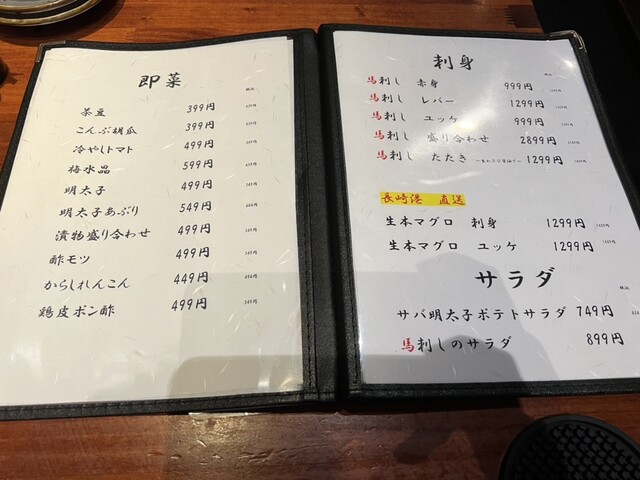 即菜
茶豆 399円
こんぶ胡瓜 399円
冷やしトマト 499円
梅水晶 599円
明太子 499円
明太子あぶり 549円
漬物盛り合わせ 499円
酢モツ 499円
からしれんこん 449円
鶏皮ポン酢 499円
刺身
馬刺し 赤身 999円
馬刺し レバー 1299円
馬刺し ユッケ 999円
馬刺し 盛り合わせ 2899円
馬刺し たたき 1299円
長崎港 直送
生本マグロ 刺身 1299円
生本マグロ ユッケ 1299円
サラダ
サバ明太子ポテトサラダ 749円
馬刺しのサラダ 899円